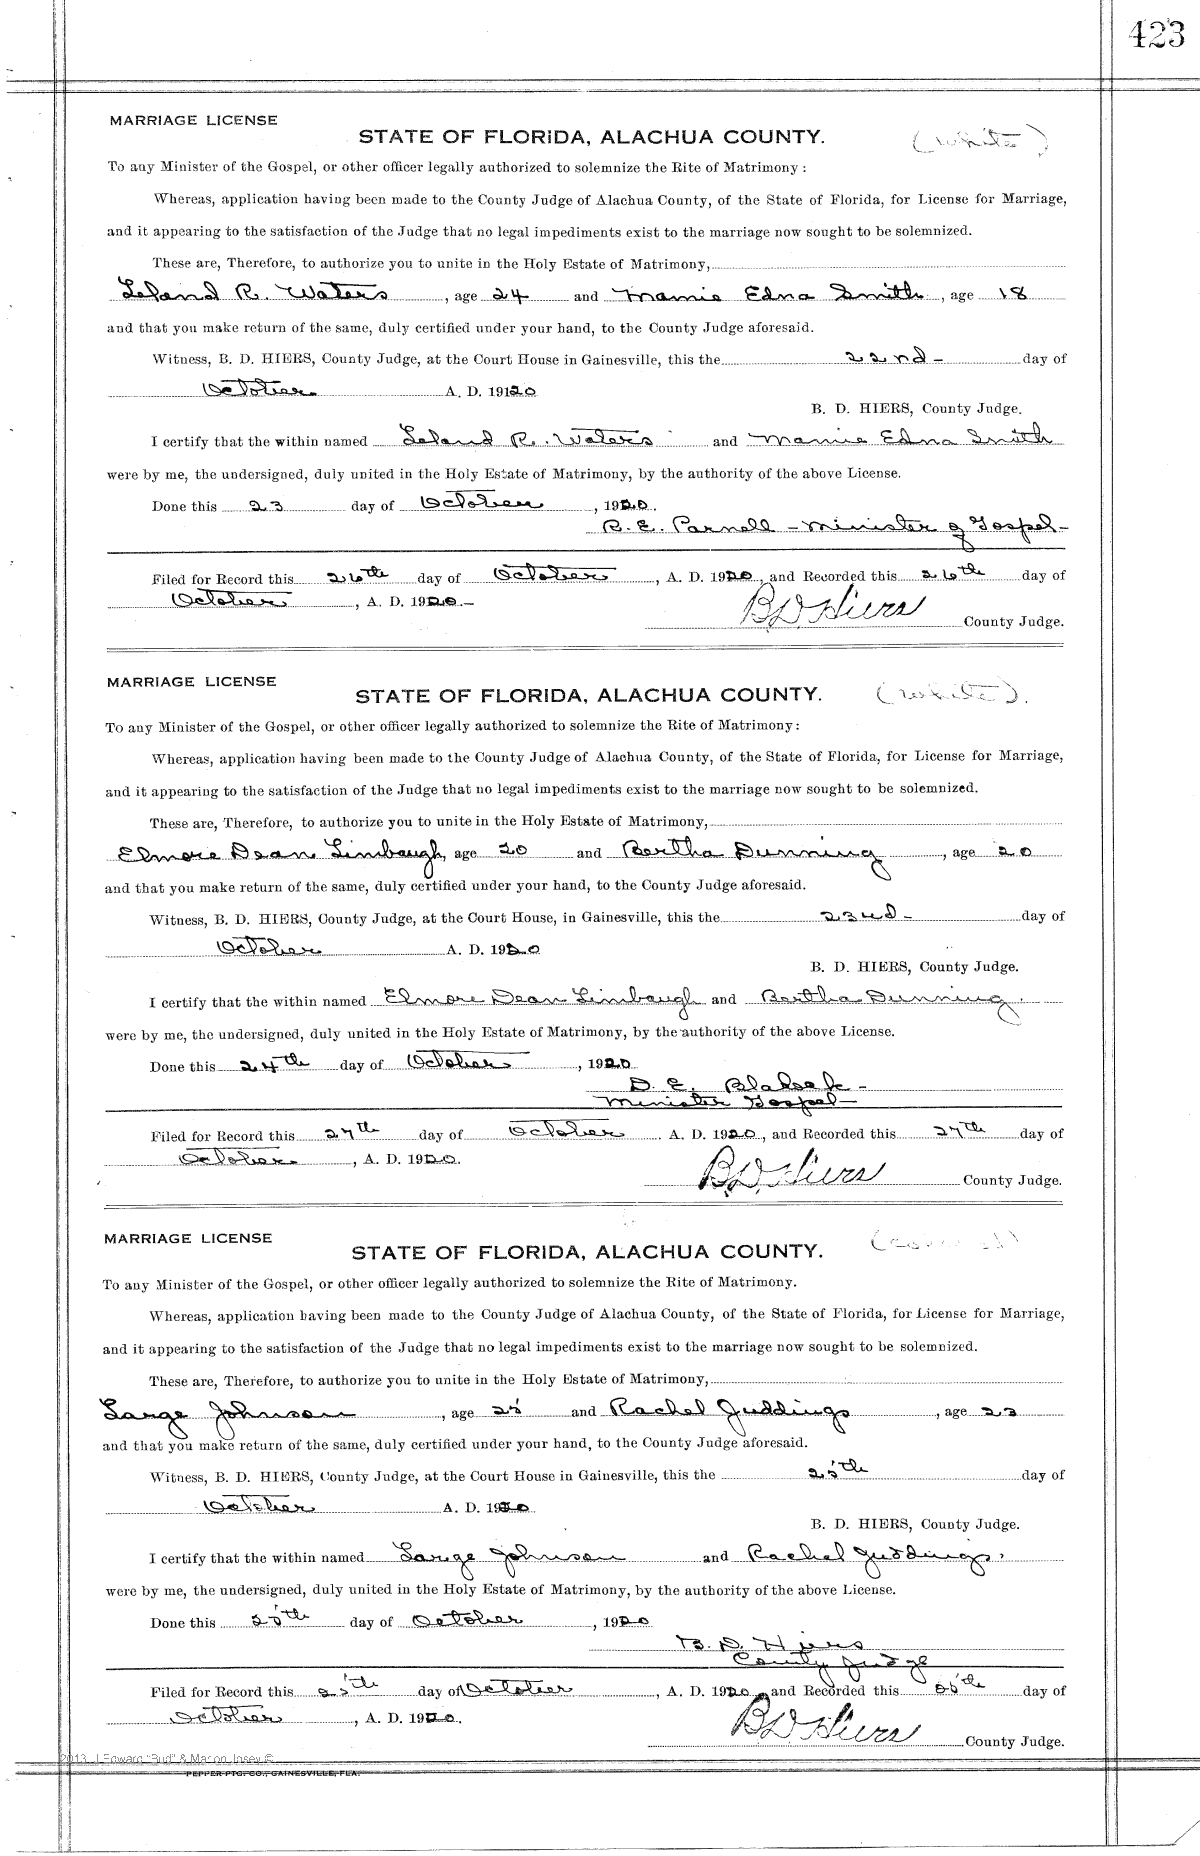 423
MARRIAGE LICENSE
STATE OF FLORIDA, ALACHUA COUNTY. (White)
To any Minister of the Gospel, or other officer legally authorized to solemnize the Rite of Matrimony:
Whereas, application having been made to the County Judge of Alachua County, of the State of Florida, for License for Marriage,
and it appearing to the satisfaction of the Judge that no legal impediments exist to the marriage now sought to be solemnized.
These are, Therefore, to authorize you to unite in the Holy Estate of Matrimony,
Leland R. Waters, age 24 and Mamie Edna Smith, age 18
and that you make return of the same, duly certified under your hand, to the County Judge aforesaid.
Witness, B. D. HIERS, County Judge, at the Court House in Gainesville, this the 22nd- day of
October A. D. 1920
B. D. HIERS, County Judge.
I certify that the within named Leland R. Waters and Mamie Edna Smith
were by me, the undersigned, duly united in the Holy Estate of Matrimony, by the authority of the above License.
Done this 23 day of October, 1920.
R. E. Parnell - Minister of Gospel-
Filed for Record this 26th day of October, A. D. 1920, and Recorded this 26th day of
October, A. D. 1920.-
B D Hiers County Judge.
MARRIAGE LICENSE
STATE OF FLORIDA, ALACHUA COUNTY. (White).
To any Minister of the Gospel, or other officer legally authorized to solemnize the Rite of Matrimony:
Whereas, application having been made to the County Judge of Alachua County, of the State of Florida, for License for Marriage,
and it appearing to the satisfaction of the Judge that no legal impediments exist to the marriage now sought to be solemnized.
These are, Therefore, to authorize you to unite in the Holy Estate of Matrimony,
Elmore Dean Limbaugh, age 20 and Bertha Dunning, age 20
and that you make return of the same, duly certified under your hand, to the County Judge aforesaid.
Witness, B. D. HIERS, County Judge, at the Court House, in Gainesville, this the 23rd- day of
October A. D. 1920
B. D. HIERS, County Judge.
I certify that the within named Elmore Dean Limbaugh and Bertha Dunning.
were by me, the undersigned, duly united in the Holy Estate of Matrimony, by the authority of the above License.
Done this 24th day of October, 1920
D. E.
Minister Gospel-
Filed for Record this 27th day of October A. D. 1920, and Recorded this 27th day of
October, A. D. 1920.
B D Hiers County Judge.
MARRIAGE LICENSE
STATE OF FLORIDA, ALACHUA COUNTY.
To any Minister of the Gospel, or other officer legally authorized to solemnize the Rite of Matrimony.
Whereas, application having been made to the County Judge of Alachua County, of the State of Florida, for License for Marriage,
and it appearing to the satisfaction of the Judge that no legal impediments exist to the marriage now sought to be solemnized.
These are, Therefore, to authorize you to unite in the Holy Estate of Matrimony,
Large Johnson, age 25 and Rachel Juddings, age 23
and that you make return of the same, duly certified under your hand, to the County Judge aforesaid.
Witness, B. D. HIERS, County Judge, at the Court House in Gainesville, this the 25th day of
October A. D. 1920
B. D. HIERS, County Judge.
I certify that the within named Large Johnson and Rachel Juddings.
were by me, the undersigned, duly united in the Holy Estate of Matrimony, by the authority of the above License.
Done this 25th day of October, 1920
B. D. Hiers
County Judge
Filed for Record this 25th day of October, A. D. 1920, and Recorded this 25th day of
October, A. D. 1920.
B D Hiers County Judge.
2013, J Edward "Bud" & Marion Josey ©
PEPPER PTG. CO., GAINESVILLE, FLA.